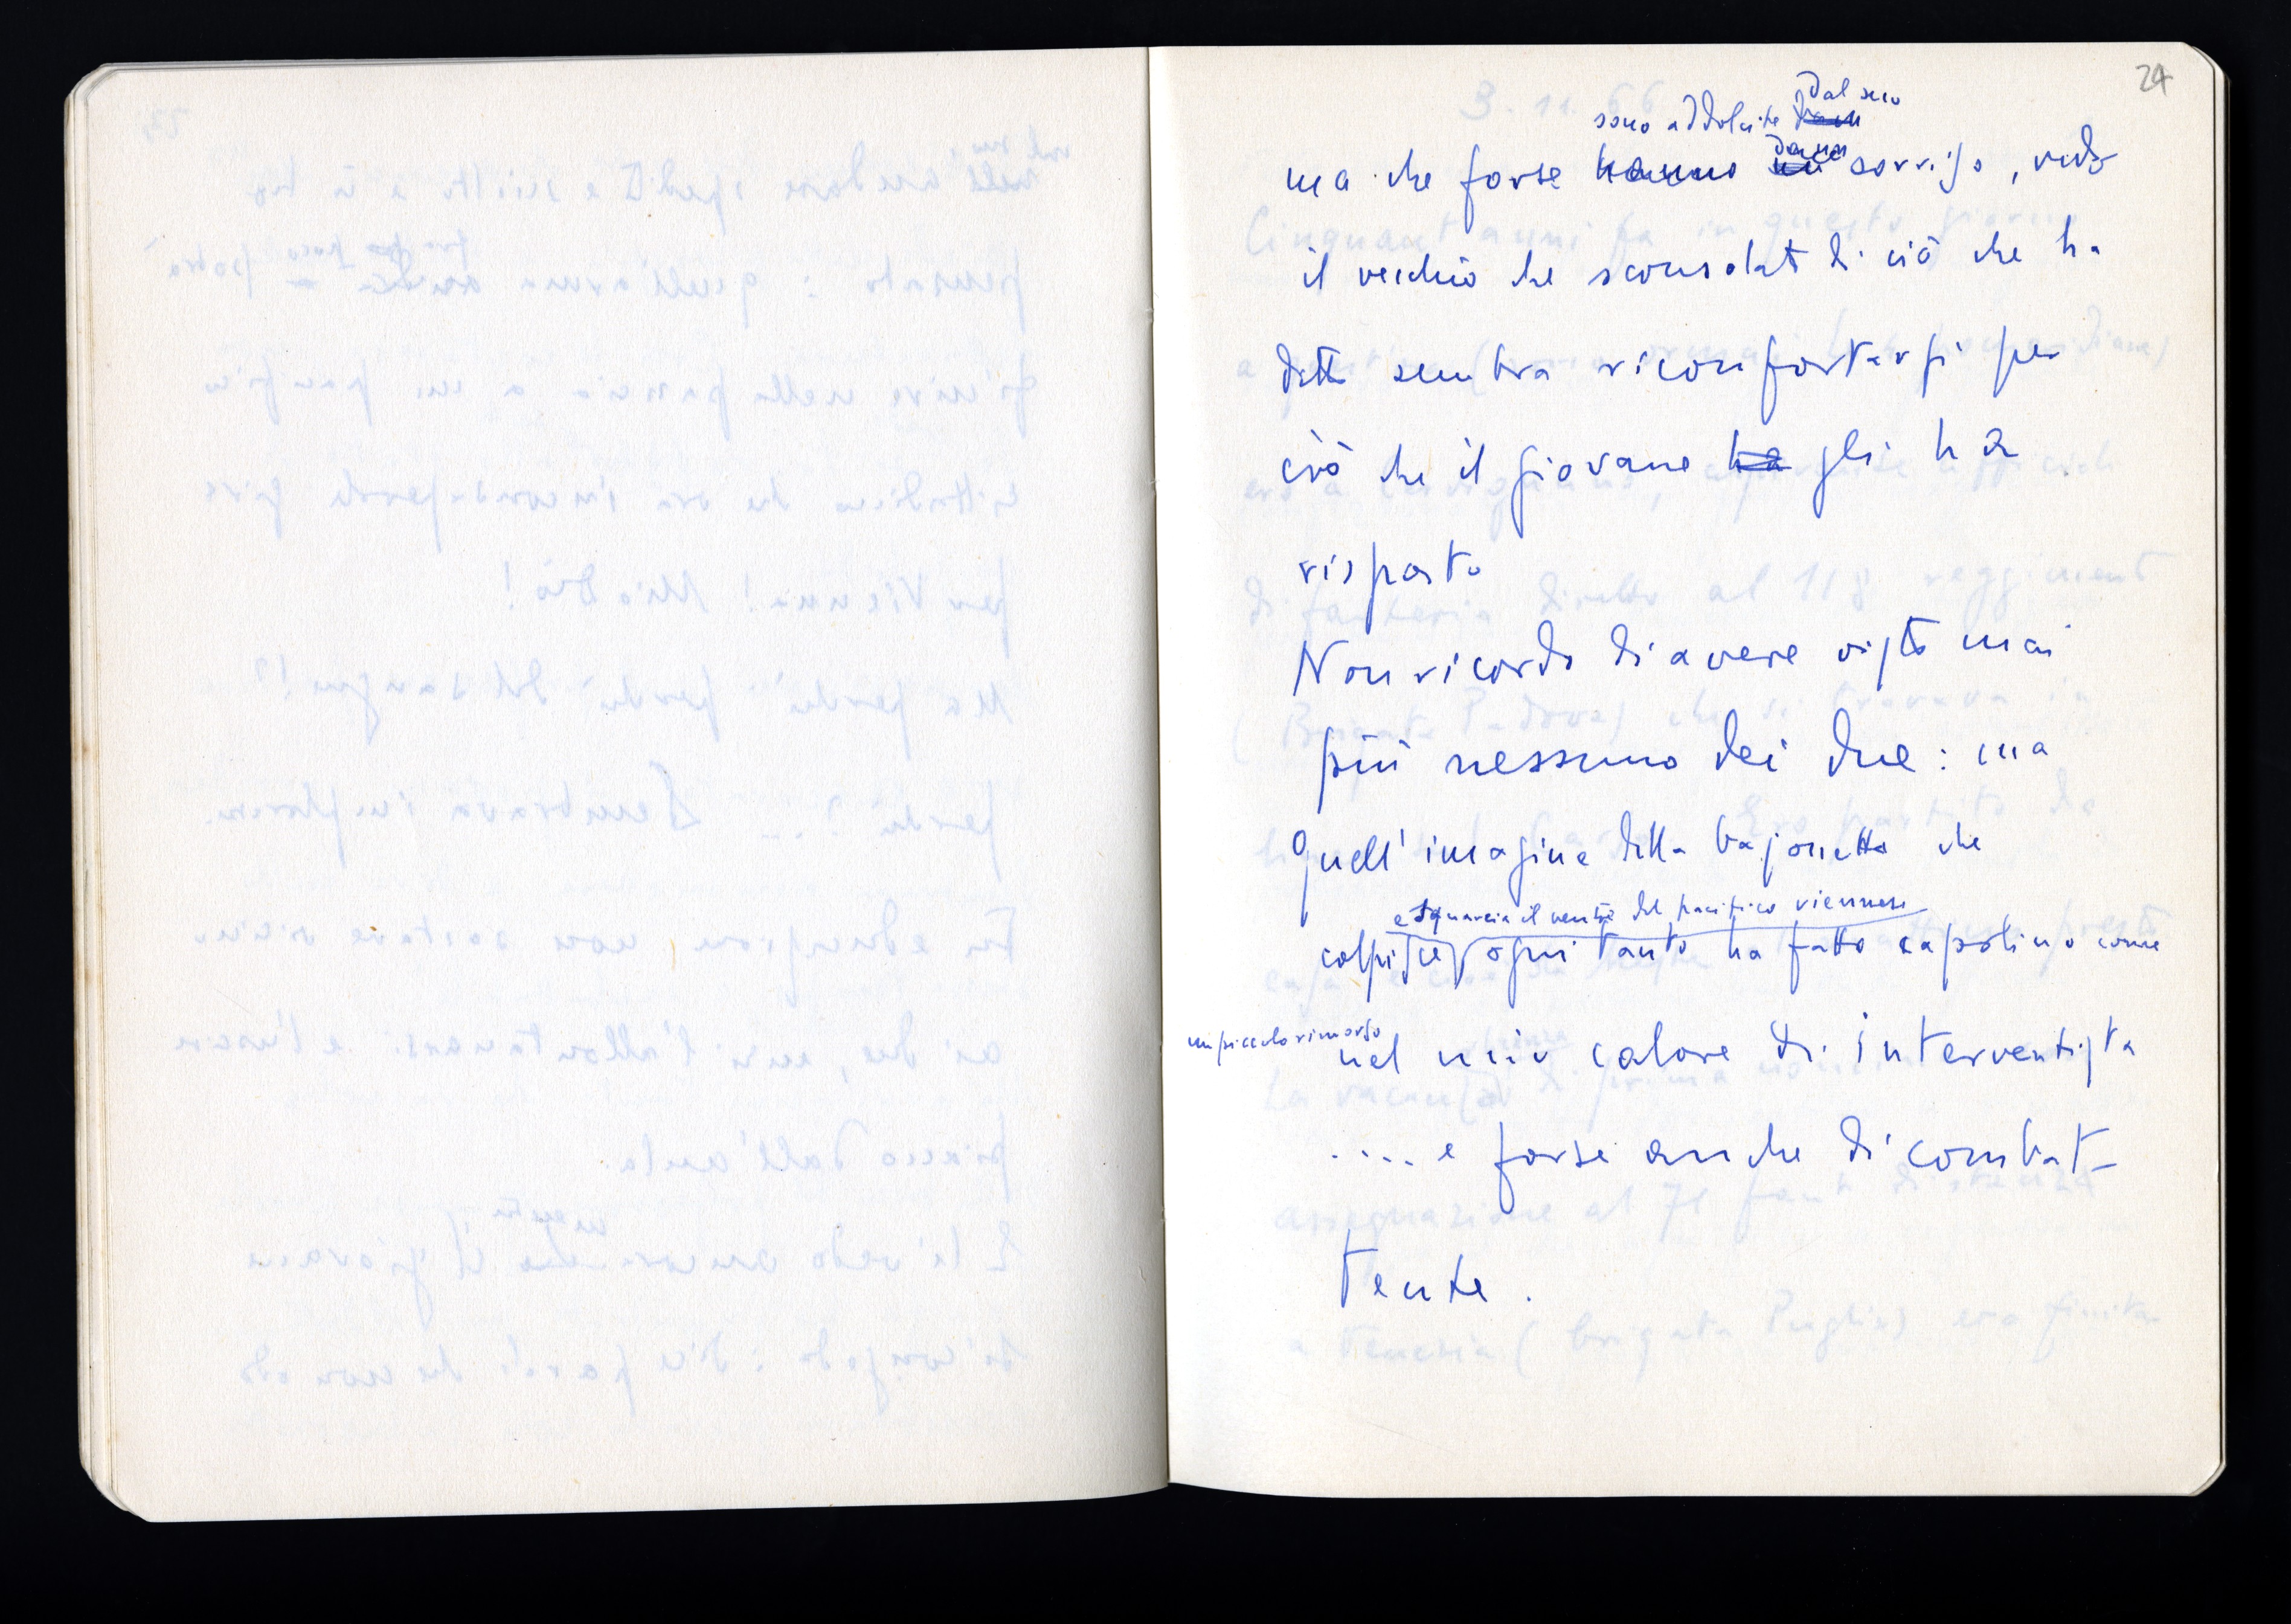 24
sono addolcite dal suo
ma che forse hanno un da un sorriso, vedo
il vecchio che sconsolato di ciò che ha
detto sembra riconfortarsi per
ciò che il giovane ha gli ha
risposto
Non ricordo di avere visto mai
più nessuno dei due: ma
quell'imagine della bajonetta che
e squarcia il ventre del pacifico viennese
colpisce ogni tanto ha fatto capolino come
un piccolo rimorso
nel mio calore di interventista
.... e forse anche di combat-
tente.